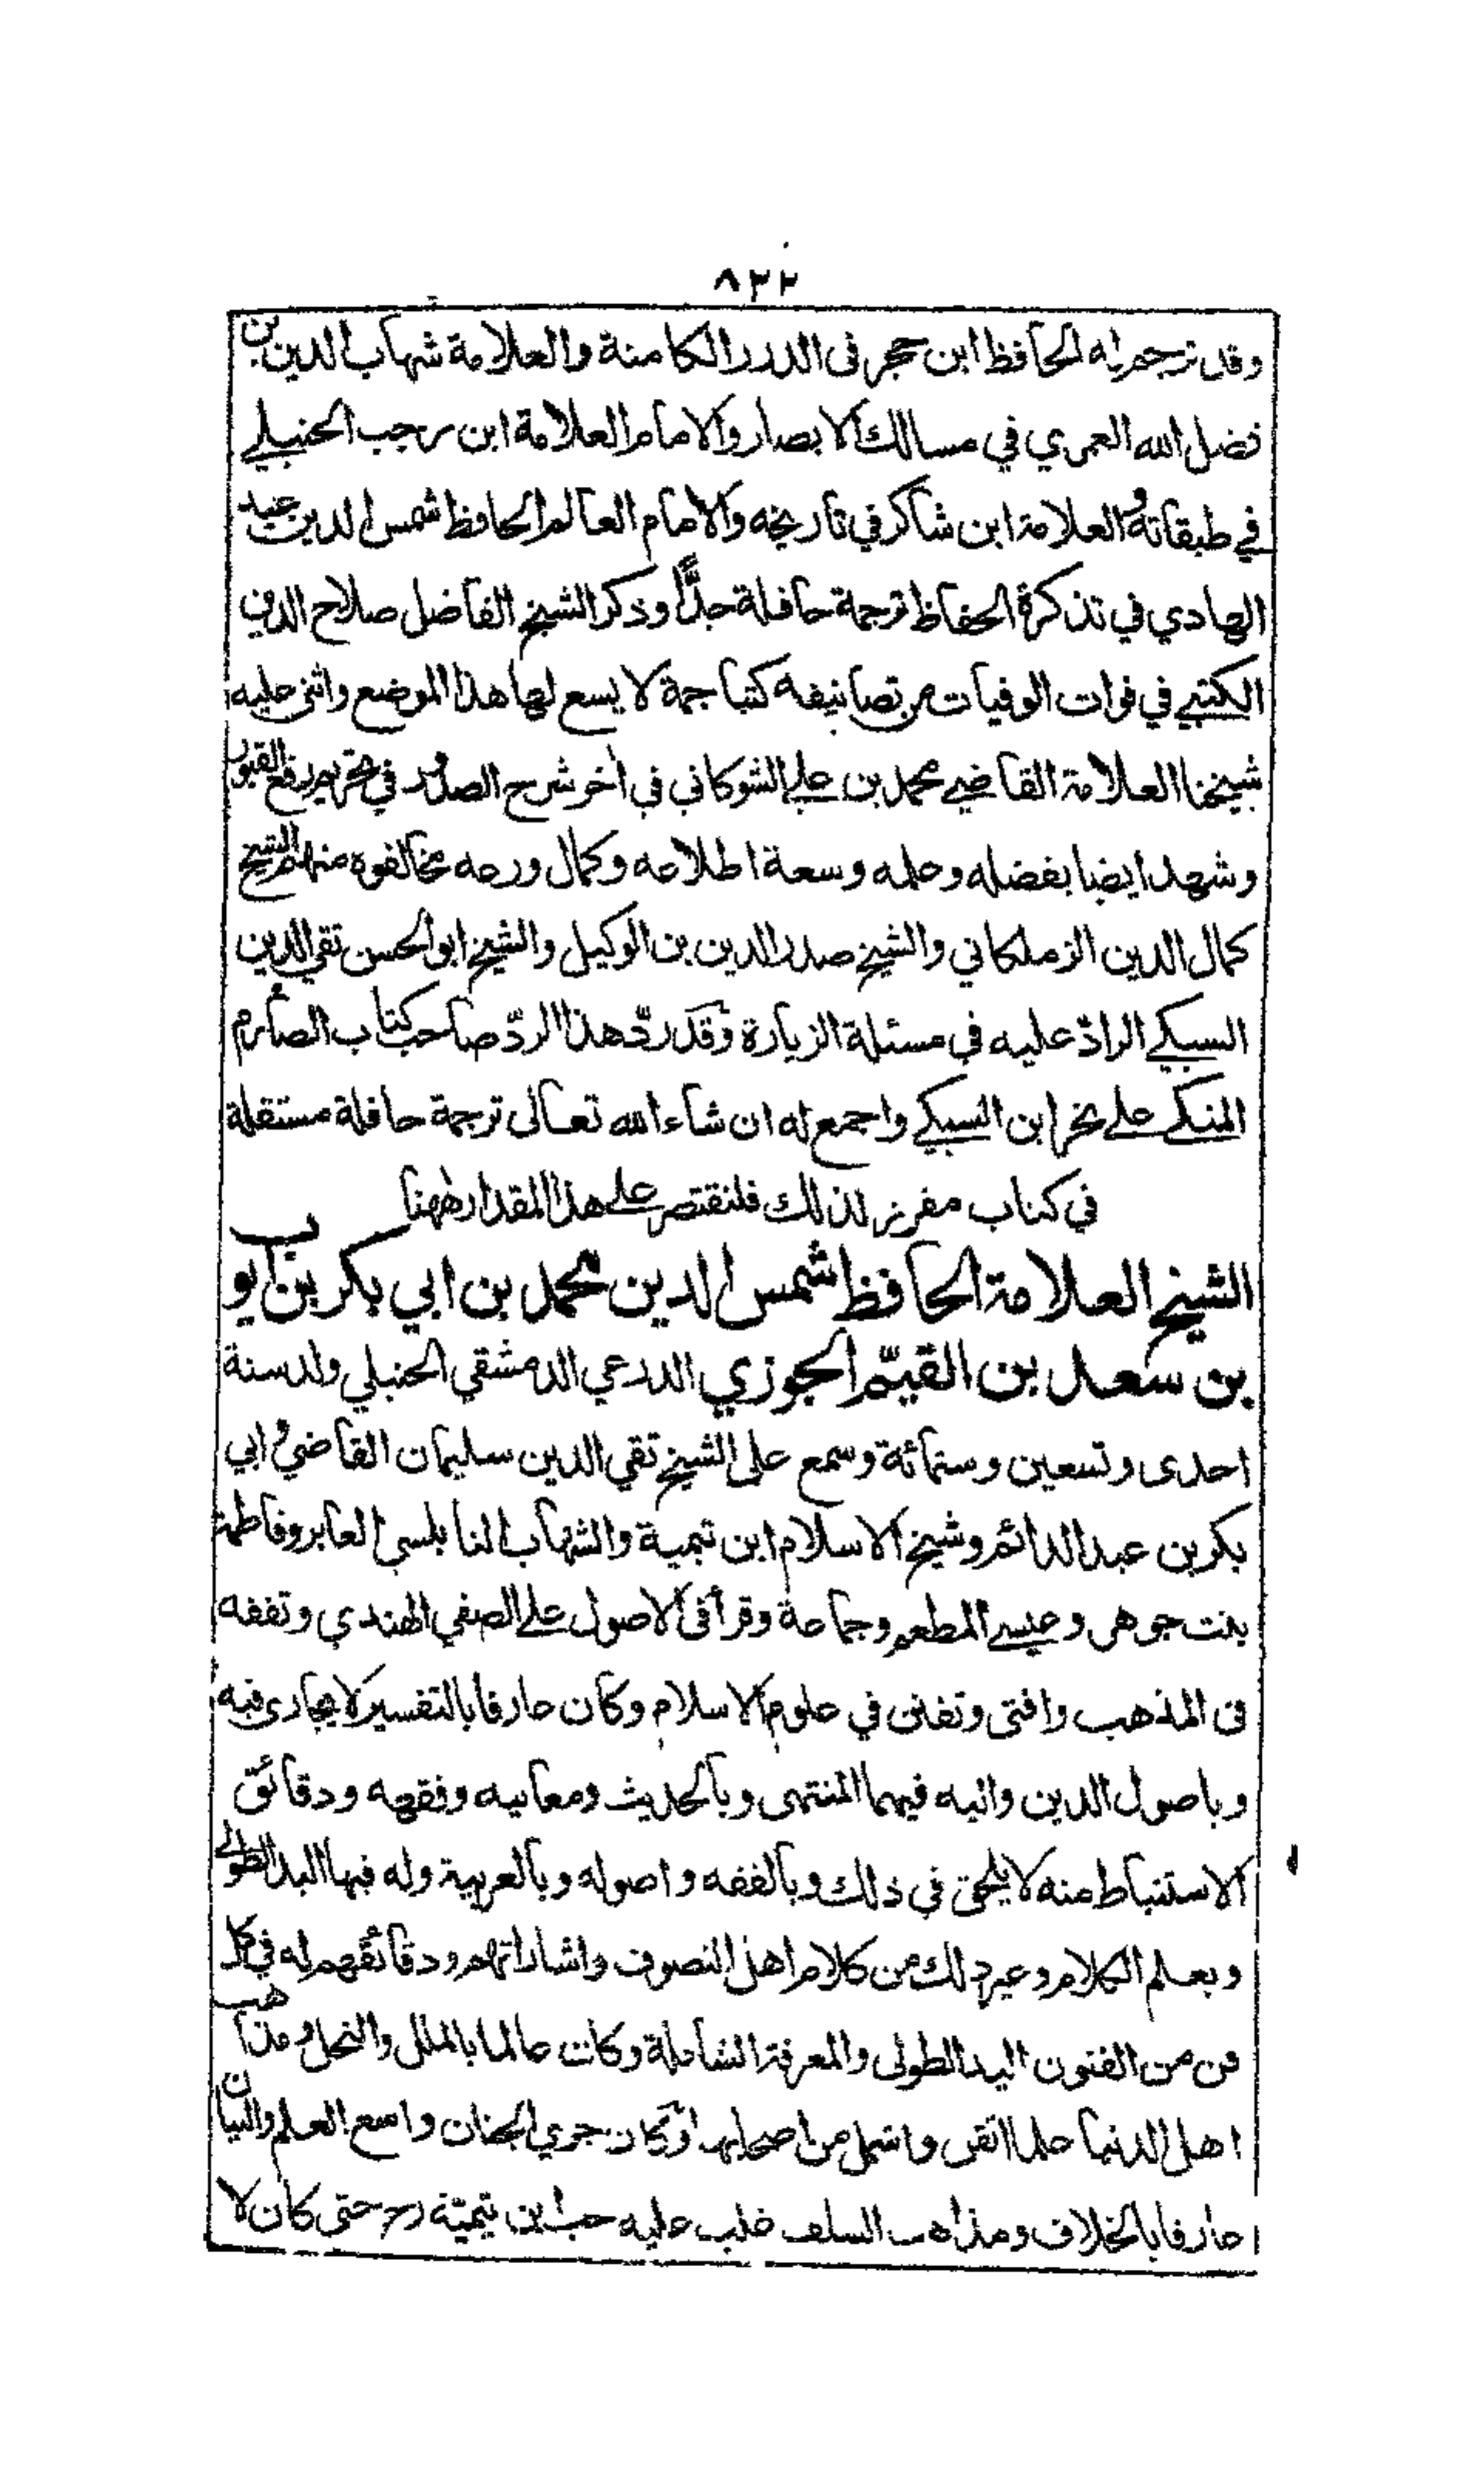 ٨٣٢
وقد ترجم له الحافظ ابن حجر فى الدرر الكامنة والعلامة شهاب الدين بن
فضل الله العمري في مسالك الابصار والامام العلامة ابن رجب الحنبلي
في طبقاته والعلامة ابن شاكر في تاريخه والامام العالم الحافظ شمس الدين عبد
الهادي في تذكرة الحفاظ ترجمة حافلة جدًّا وذكر الشيخ الفاضل صلاح الدين
الكتبي في فوات الوفيات من تصانيفه كتبا جمة لا يسع لها هذا الموضع واثنى عليه
شيخنا العلامة القاضي محمد بن علي الشوكاني في اخر شرح الصدور في تحريم رفع القبور
وشهد ايضا بفضله وعلمه وسعة اطلاعه وكمال ورعه مخالفوه منهم الشيخ
كمال الدين الزملكاني والشيخ صدر الدين بن الوكيل والشيخ ابو الحسن تقي الدين
السبكي الرادّ عليه في مسئلة الزيارة وقد ردّ هذا الردّ صاحب كتاب الصارم
المنكي على نحر ابن السبكي واجمع له ان شاء الله تعالى ترجمة حافلة مستقلة
في كتاب مفرز لذلك فلنقتصر على هذا المقدار ههنا
الشيخ العلامة الحافظ شمس الدين محمد بن ابي بكر بن ايوب
بن سعد بن القيّم الجوزي الدرعي الدمشقي الحنبلي ولد سنة
احدى وتسعين وستمائة وسمع على الشيخ تقي الدين سليمان القاضي وابي
بكر بن عبد الدائم وشيخ الاسلام ابن تيمية والشهاب النابلسي العابر وفاطمة
بنت جوهر وعيسى المطعم وجماعة وقرأ فى الاصول على الصفي الهندي وتفقه
فى المذهب وافتى وتفنن في علوم الاسلام وكان عارفا بالتفسير لا يجارى فيه
وباصول الدين واليه فيهما المنتهى وبالحديث ومعانيه وفقهه ودقائق
الاستنباط منه لا يلحق في ذلك وبالفقه واصوله وبالعربية وله فيها اليد الطولى
وبعلم الكلام وغير ذلك من كلام اهل التصوف واشاراتهم ودقائقهم له في كل
فن من الفنون اليد الطولى والمعرفة الشاملة وكان عالما بالملل والنحل ومذاهب
اهل الدنيا علما اتقن واشمل من اصحابها وكان جري الجنان واسع العلم والبيان
عارفا بالخلاف ومذاهب السلف غلب عليه حب ابن تيميّة رح حتى كان لا